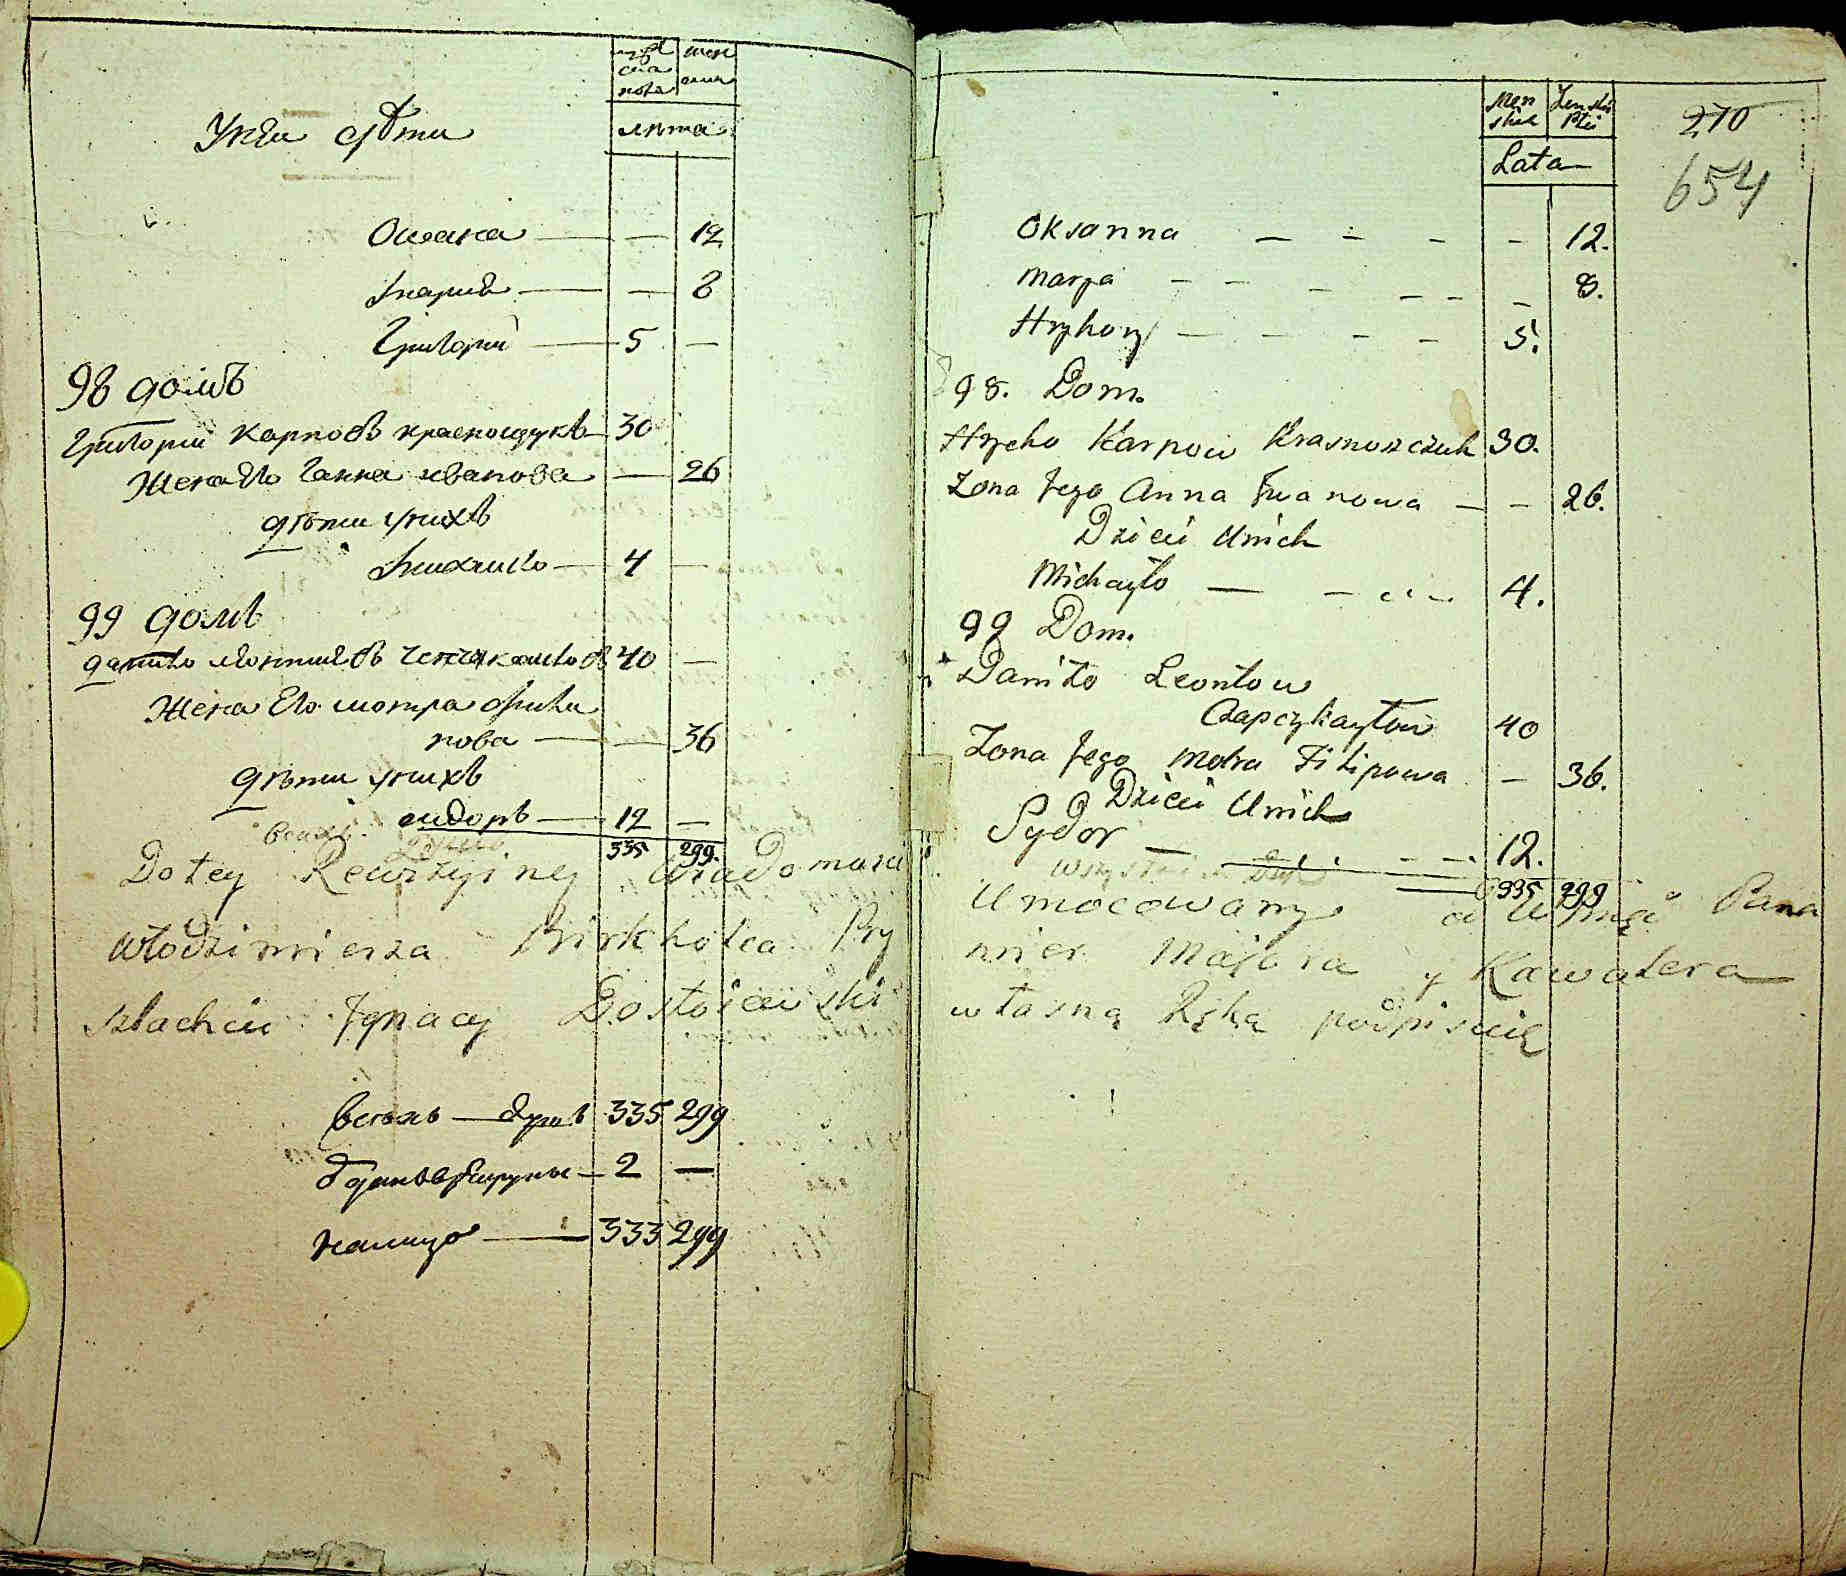 мужеска пола
женска
лѣта
У нея дѣти
Оксана — — 12
Мария — — 8
Григории — 5 —
98 домъ
Григории Карповъ Краснощукъ 30
Жена Его Ганна Иванова — 26
дѣти у нихъ
Михаило — 4 —
99 домъ
Данило Леонтиевъ 40 —
Жена Его Мотра Фили
пова — — 36
дѣти у нихъ
Сидоръ — 12 —
335 299.
Do tey Rewizyiney Wiadomosci
Włodzimierza Birkholca Pry
szlachcic Jgnacy Dostoiewski
всехъ — душъ 335 299
2 —
налицо — 333 299
Men
skich
Lata
270
654
Oksanna — — — — 12.
Marya — — — — — — 8.
Hryhory — — — — 5.
98. Dom.
Hrycko Karpow Krasnoszczuk 30.
Zona Jego Anna Jwanowa — — 26.
Dzieci U nich
Michayło — — 4.
99 Dom.
Daniło Leontow
Czapczykayłow 40
Zona Jego Motra Filipowa — 36.
Dzieci U nich
Sydor — — — 12.
335 299
Umocowany od W Jmci Pana
mier Majora y Kawalera
własną Ręką podpisuię